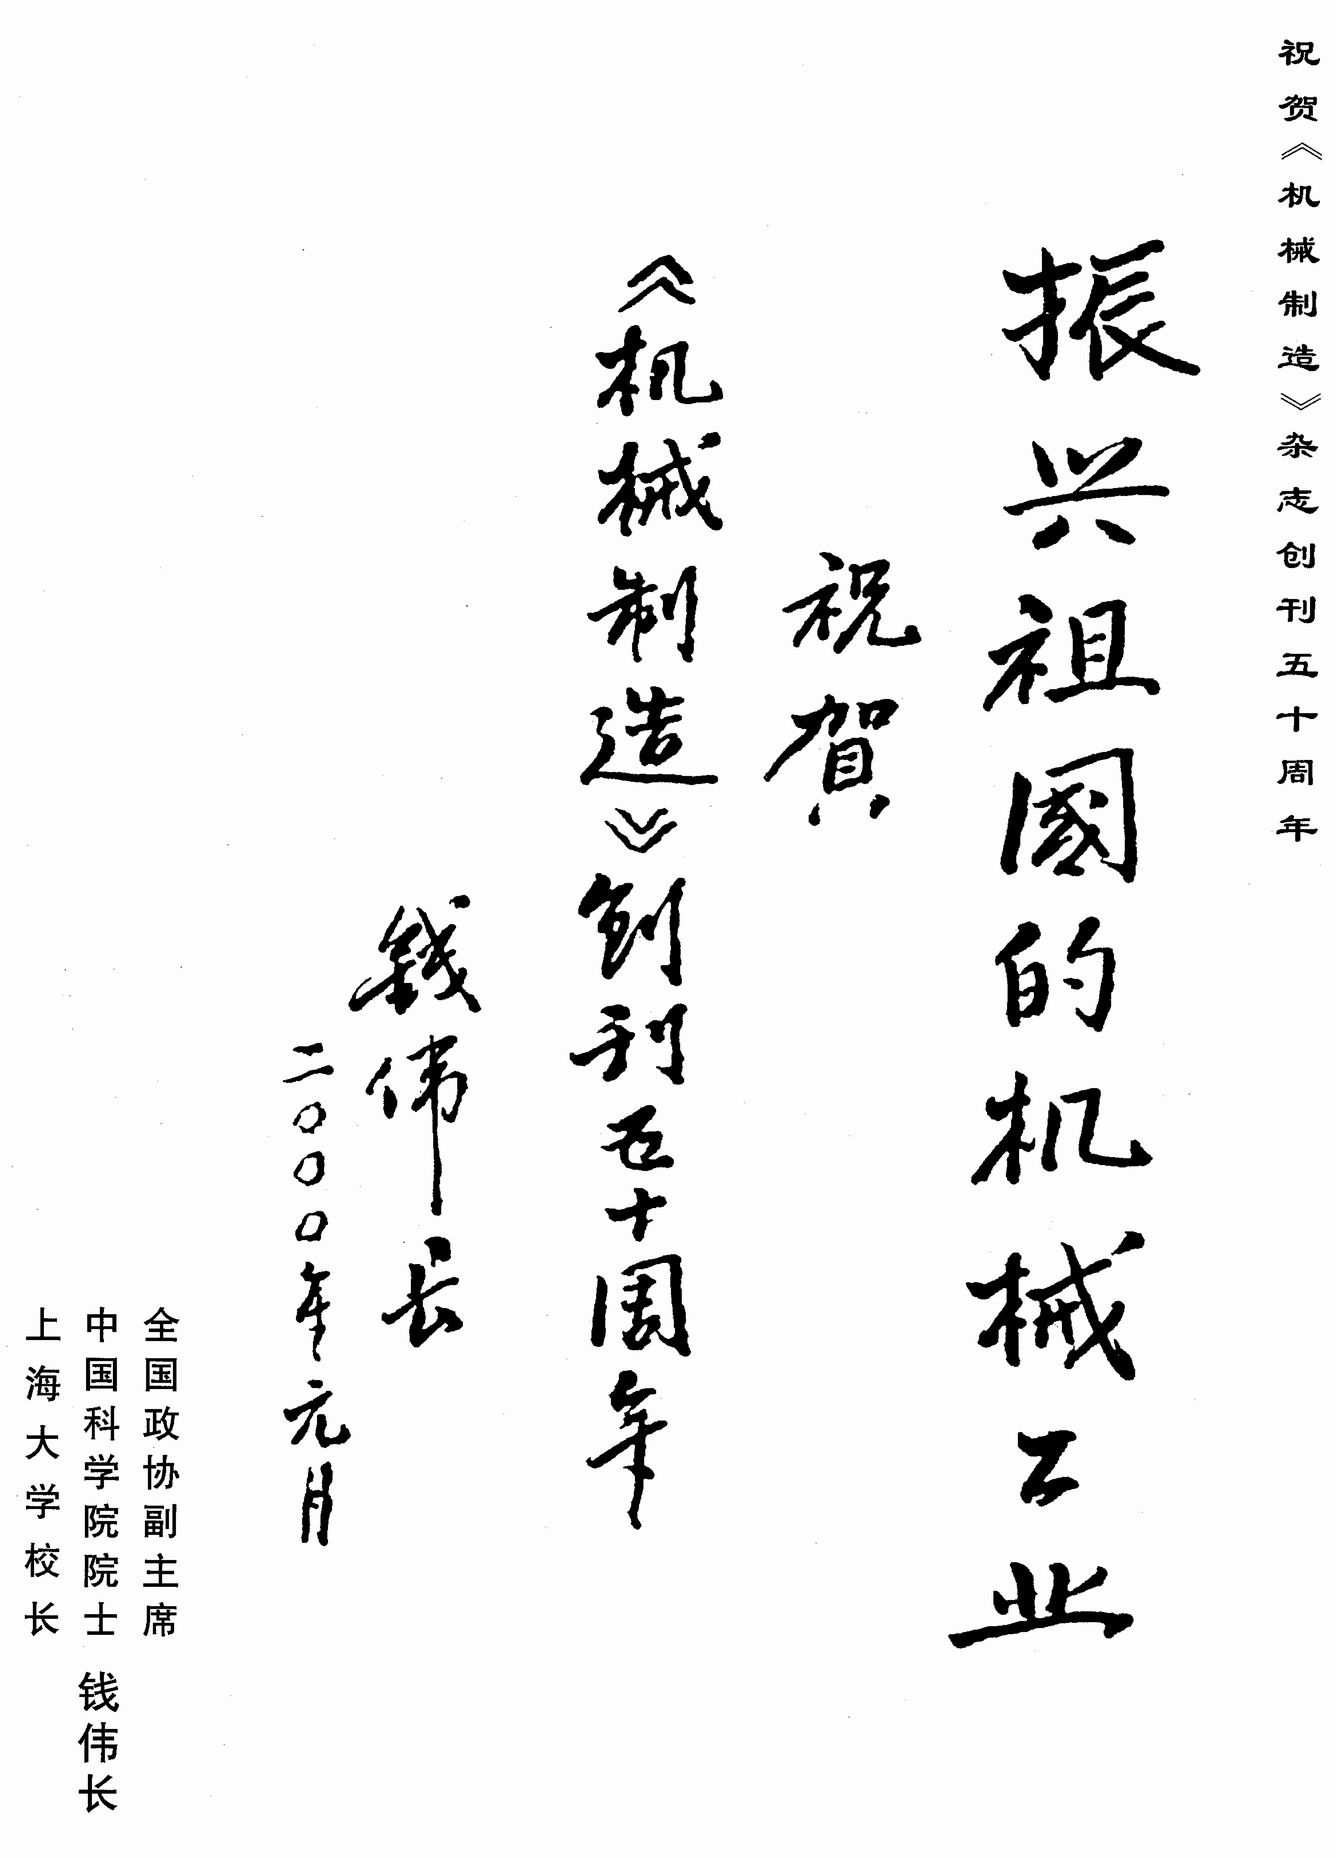 祝贺《机械制造》杂志创刊五十周年
振兴祖國的机械工业
祝賀
《机械制造》创刊五十周年
钱伟长
二〇〇〇年元月
全国政协副主席
中国科学院院士 钱伟长
上海大学校长